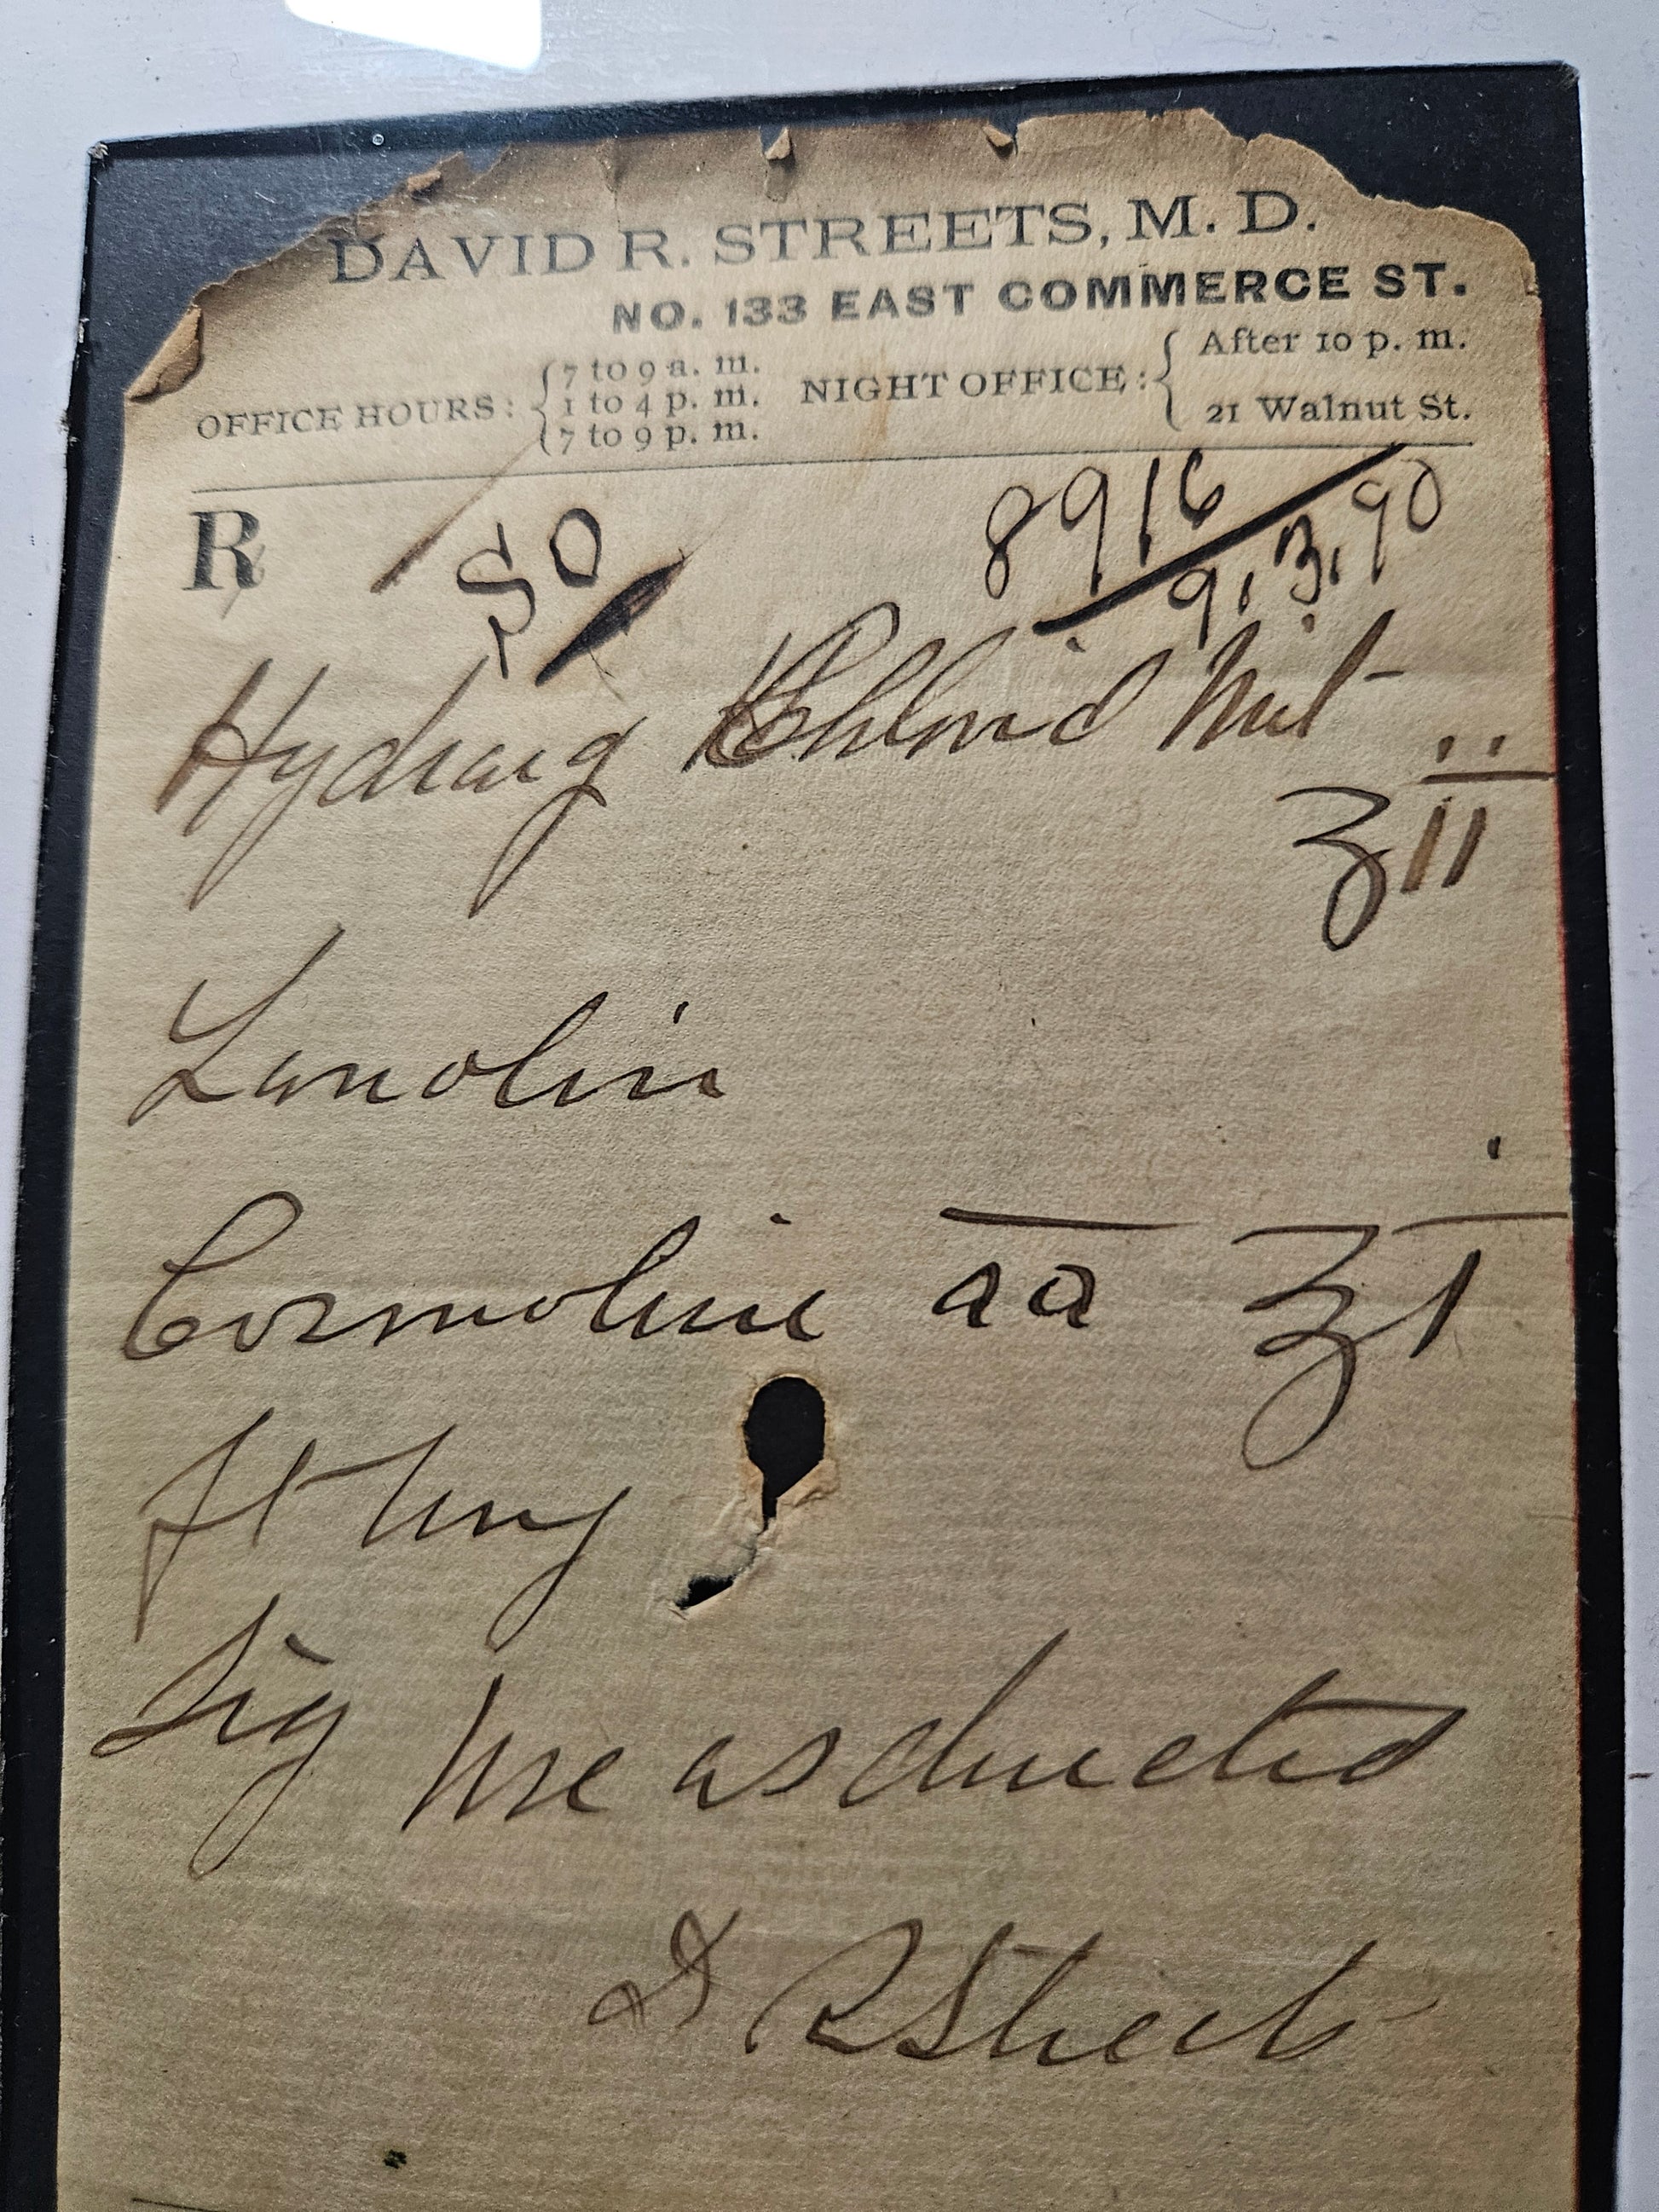 DAVID R. STREETS, M. D.
NO. 133 EAST COMMERCE ST.
OFFICE HOURS: { 7 to 9 a. m.
1 to 4 p. m.
7 to 9 p. m.
NIGHT OFFICE: { After 10 p. m.
21 Walnut St.
℞
50
8916
9.3.90
Hydrarg Chlorid Mit
ʒ ii
Lanolin
Cosmoline aa ʒ i
Ft Ung
Sig Use as directed
D R Streets